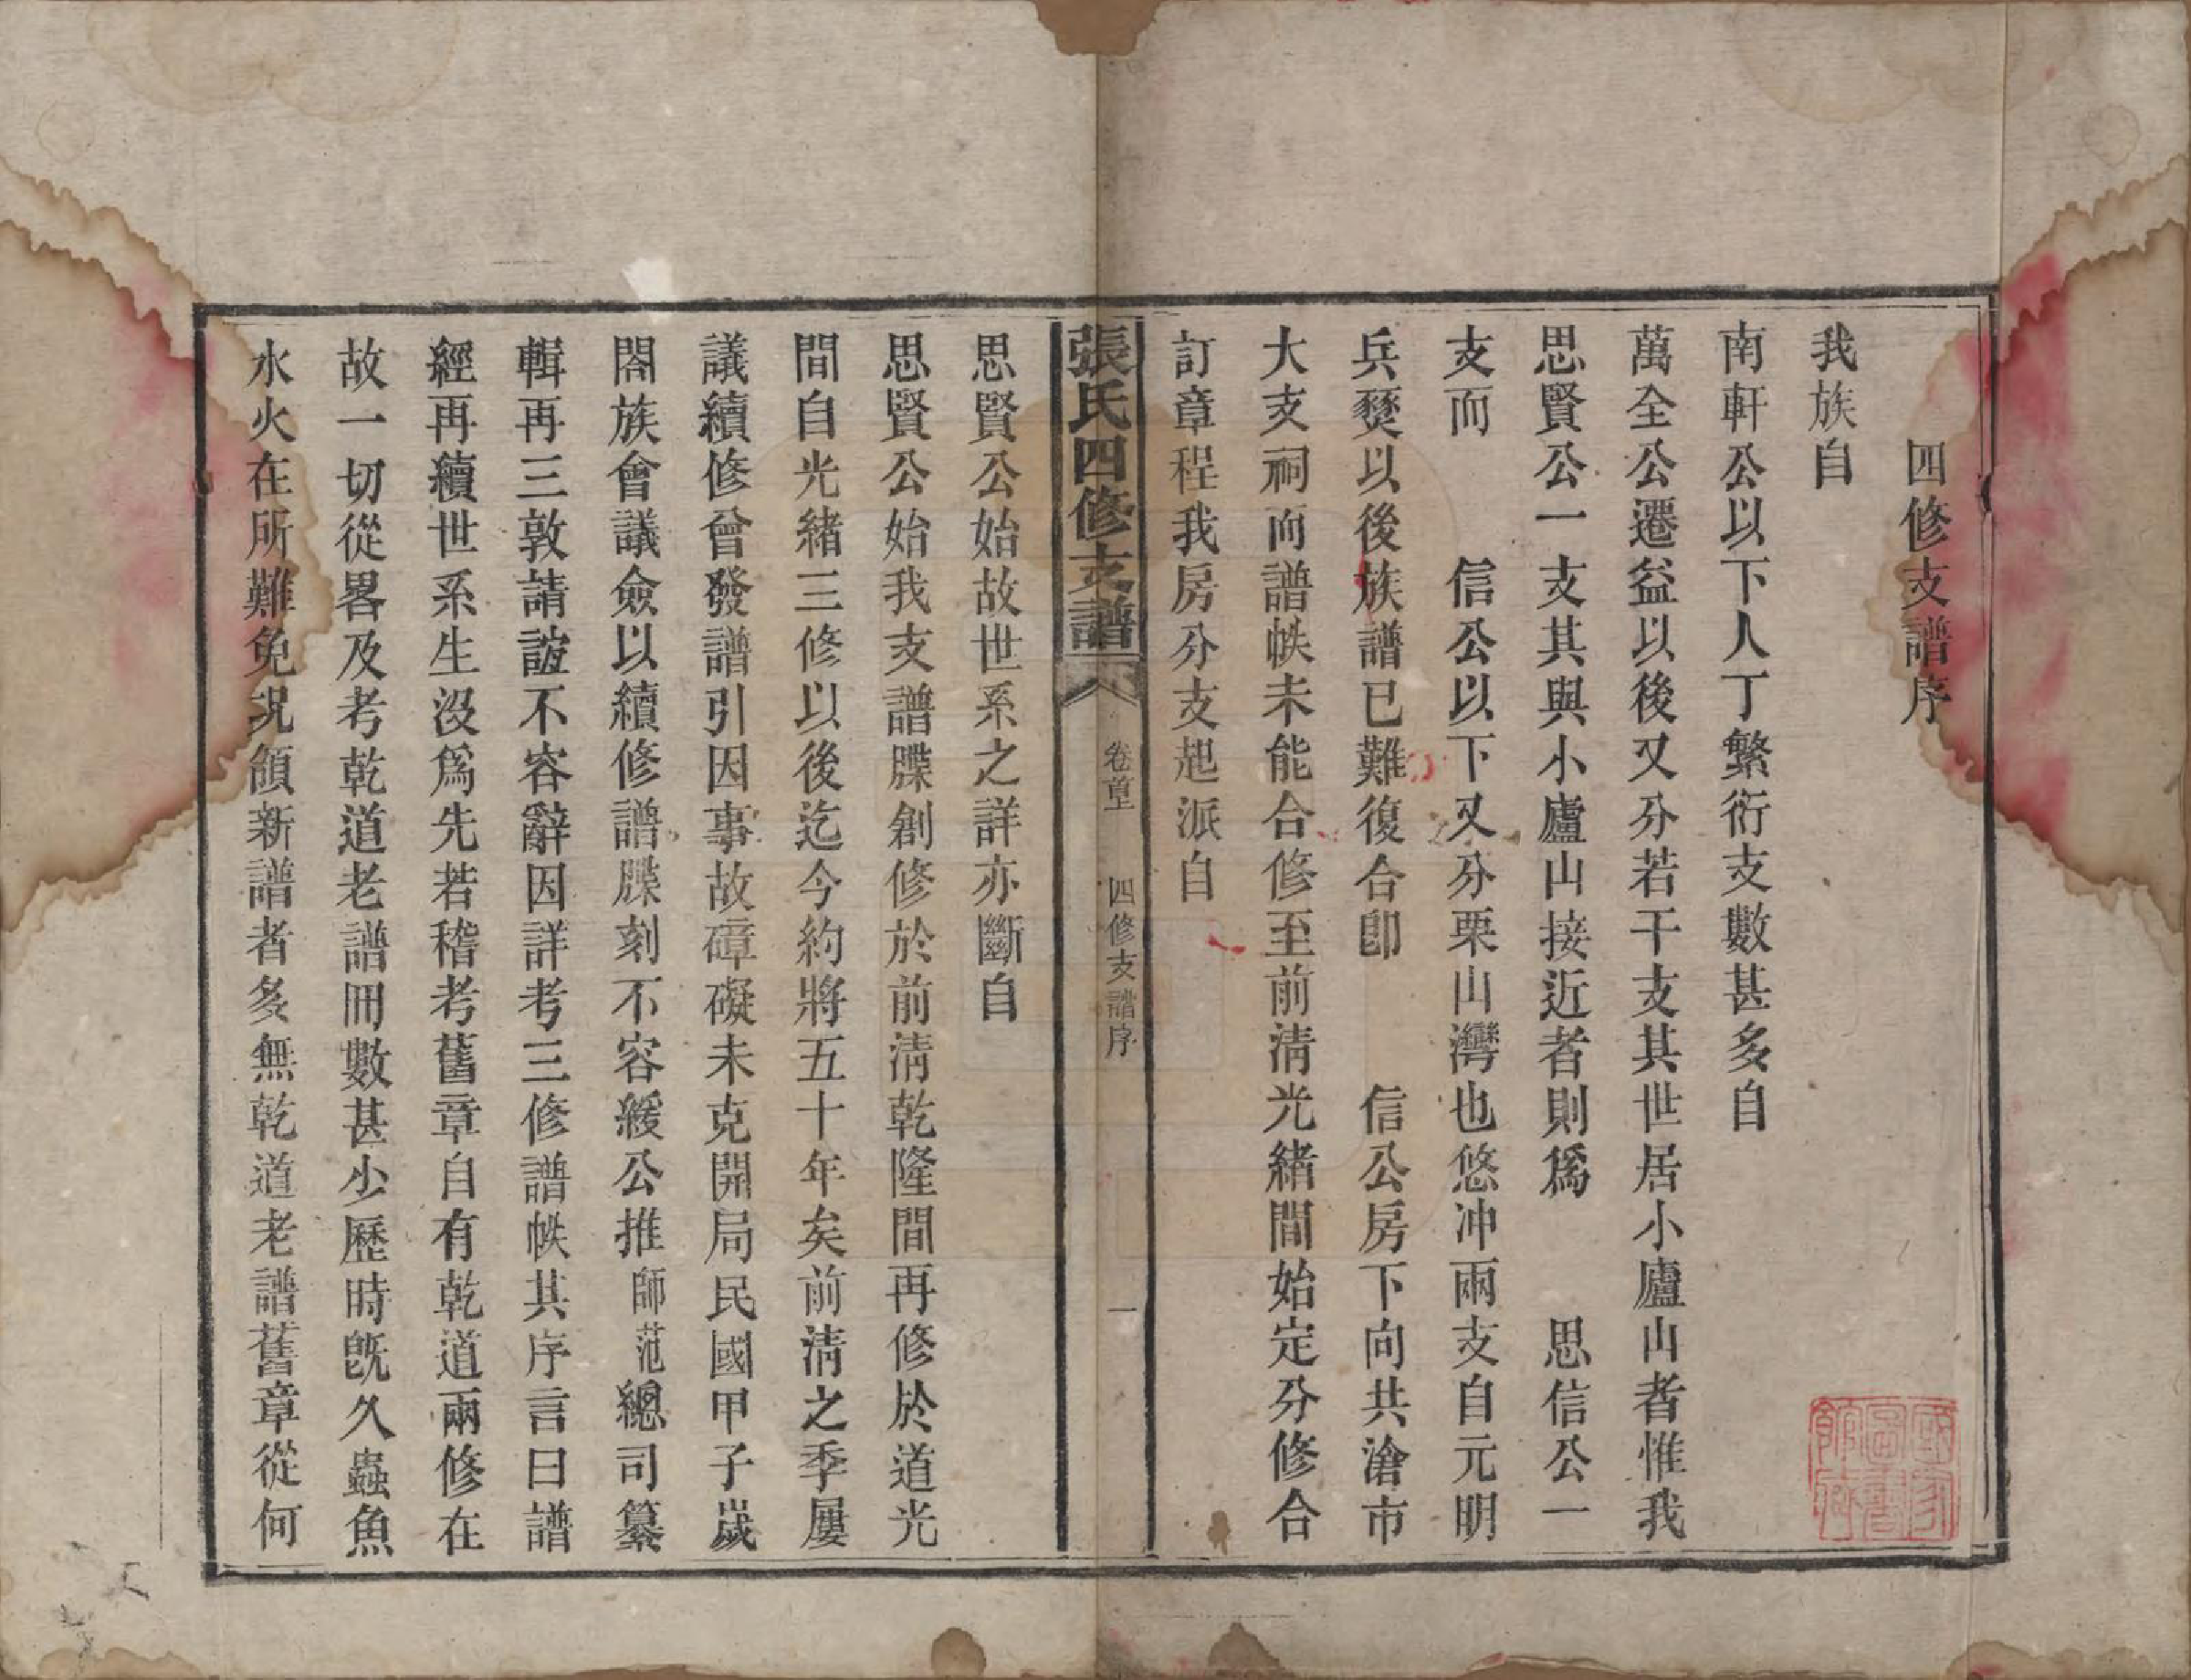 四修支譜序
我族自
南軒公以下人丁繁衍支數甚多自
萬全公遷益以後又分若干支其世居小廬山者惟我
思賢公一支其與小廬山接近者則爲　思信公一
支而　信公以下又分栗山灣也悠冲兩支自元明
兵燹以後族譜已難復合卽　信公房下向共滄市
大支祠而譜帙未能合修至前清光緒間始定分修合
訂章程我房分支起派自
張氏四修支譜　卷首上　四修支譜序　一
思賢公始故世系之詳亦斷自
思賢公始我支譜牒創修於前清乾隆間再修於道光
間自光緒三修以後迄今約將五十年矣前清之季屢
議續修曾發譜引因事故障礙未克開局民國甲子歲
閤族會議僉以續修譜牒刻不容緩公推師范總司纂
輯再三敦請誼不容辭因詳考三修譜帙其序言曰譜
經再續世系生沒爲先若稽考舊章自有乾道兩修在
故一切從畧及考乾道老譜冊數甚少歷時旣久蟲魚
水火在所難免況領新譜者多無乾道老譜舊章從何
國家圖書館藏